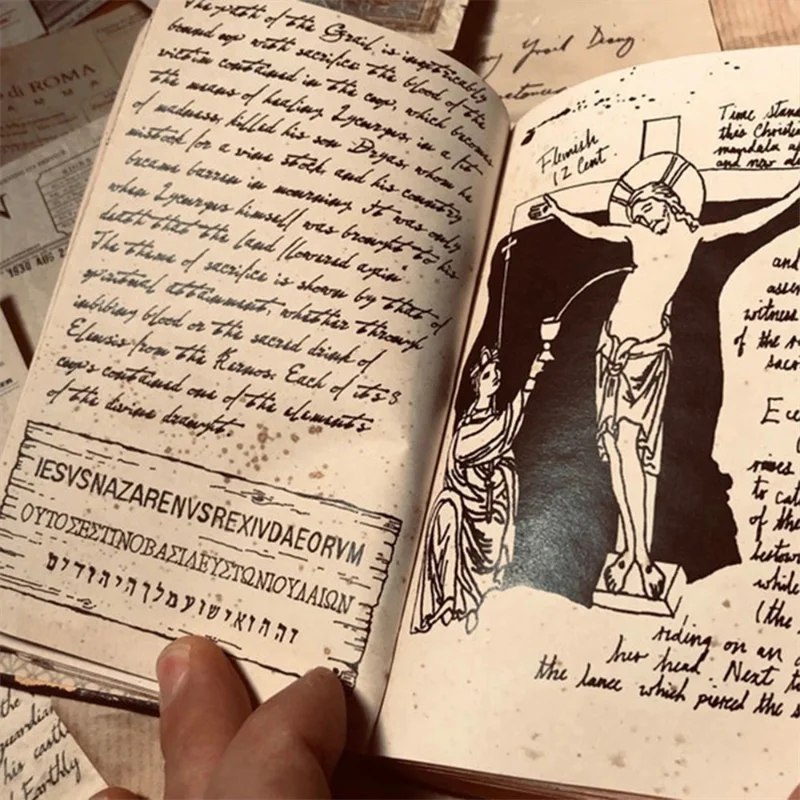 The path of the Grail, is inextricably
bound up with sacrifice the blood of the
victim contained in the cup, which becomes
the means of healing Lycurgus, in a fit
of madness, killed his son Dryas, whom he
mistook for a vine stock, and his country
became barren in mourning. It was only
when Lycurgus himself was brought to his
death that the land flowered again"
The theme of sacrifice is shown by that of
spiritual attainment, whether through
imbibing blood or the sacred drink of
Eleusis from the Kernos. Each of it's 8
cup's contained one of the elements
of the divine draught.
IESVSNAZARENVSREXIVDAEORVM
ΟΥΤΟΣΕΣΤΙΝΟΒΑΣΙΛΕΥΣΤΩΝΙΟΥΔΑΙΩΝ
זההואישועמלךהיהודים
Flemish
12 Cent.
Time
this
mandala
and now
and
witness
of the
to
of the
while
(the
riding on an
her head. Next
the lance which pierced the
Diary.
di ROMA
1930 AUG 2
the
guardian
his castle
Earthly